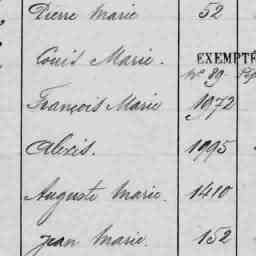 Pierre Marie 52
Louis Marie. EXEMPTÉ
No 89
François Marie 1972
Alexis. 1995
Auguste Marie. 1410
Jean Marie. 152